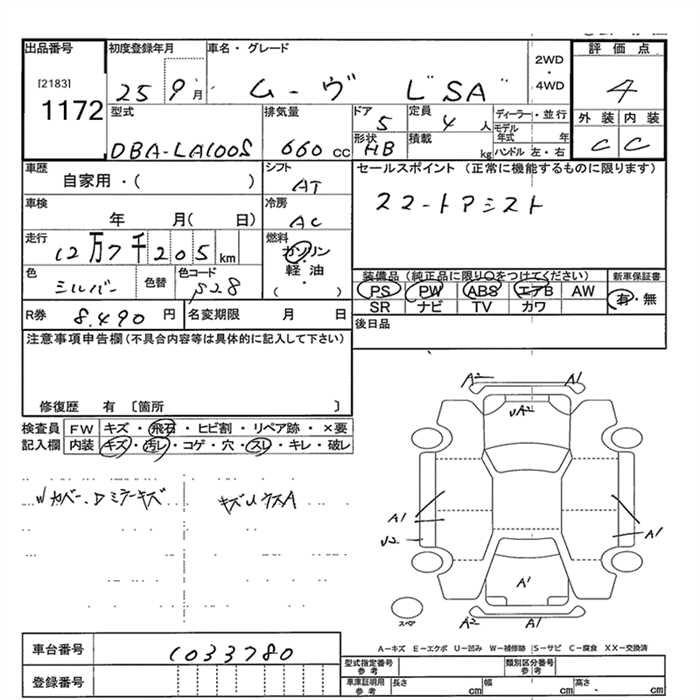 出品番号 初度登録年月 車名・グレード 評価点
[2183] 1172
25 9月 ムーヴ L"SA" 2WD・4WD 4
型式 排気量 ドア 5 定員 4人 ディーラー・並行 外装 内装
DBA-LA100S 660cc 形状 HB 積載 kg モデル年式 年 C C
ハンドル 左・右
車歴 シフト セールスポイント(正常に機能するものに限ります)
自家用・( ) AT
車検 冷房 スマートアシスト
年 月( 日) AC
走行 燃料
12万7千205km ガソリン・軽油・( )
色 色替 色コード 装備品(純正品に限り○をつけてください) 新車保証書
シルバー S28 PS PW ABS エアB AW 有・無
SR ナビ TV カワ
R券 8,490円 名変期限 月 日 後日品
注意事項申告欄(不具合内容等は具体的に記入して下さい)
修復歴 有 〔箇所 〕
検査員 FW キズ・飛石・ヒビ割・リペア跡・×要
記入欄 内装 キズ・汚レ・コゲ・穴・スレ・キレ・破レ
キズ
A2 A1
A2
A1 A1
U2
A1
スペア A2 A1
A－キズ E－エクボ U－凹み W－補修跡 S－サビ C－腐食 XX－交換済
車台番号 1033780
型式指定番号 参考 類別区分番号 参考
登録番号 車庫証明用 参考 長さ cm 幅 cm 高さ cm